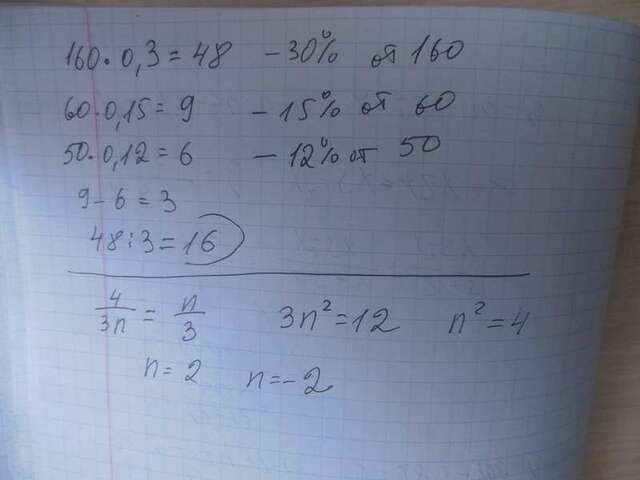 160·0,3=48 -30% от 160
60·0,15=9 -15% от 60
50·0,12=6 -12% от 50
9-6=3
48:3=16
4/3n = n/3 3n²=12 n²=4
n=2 n=-2